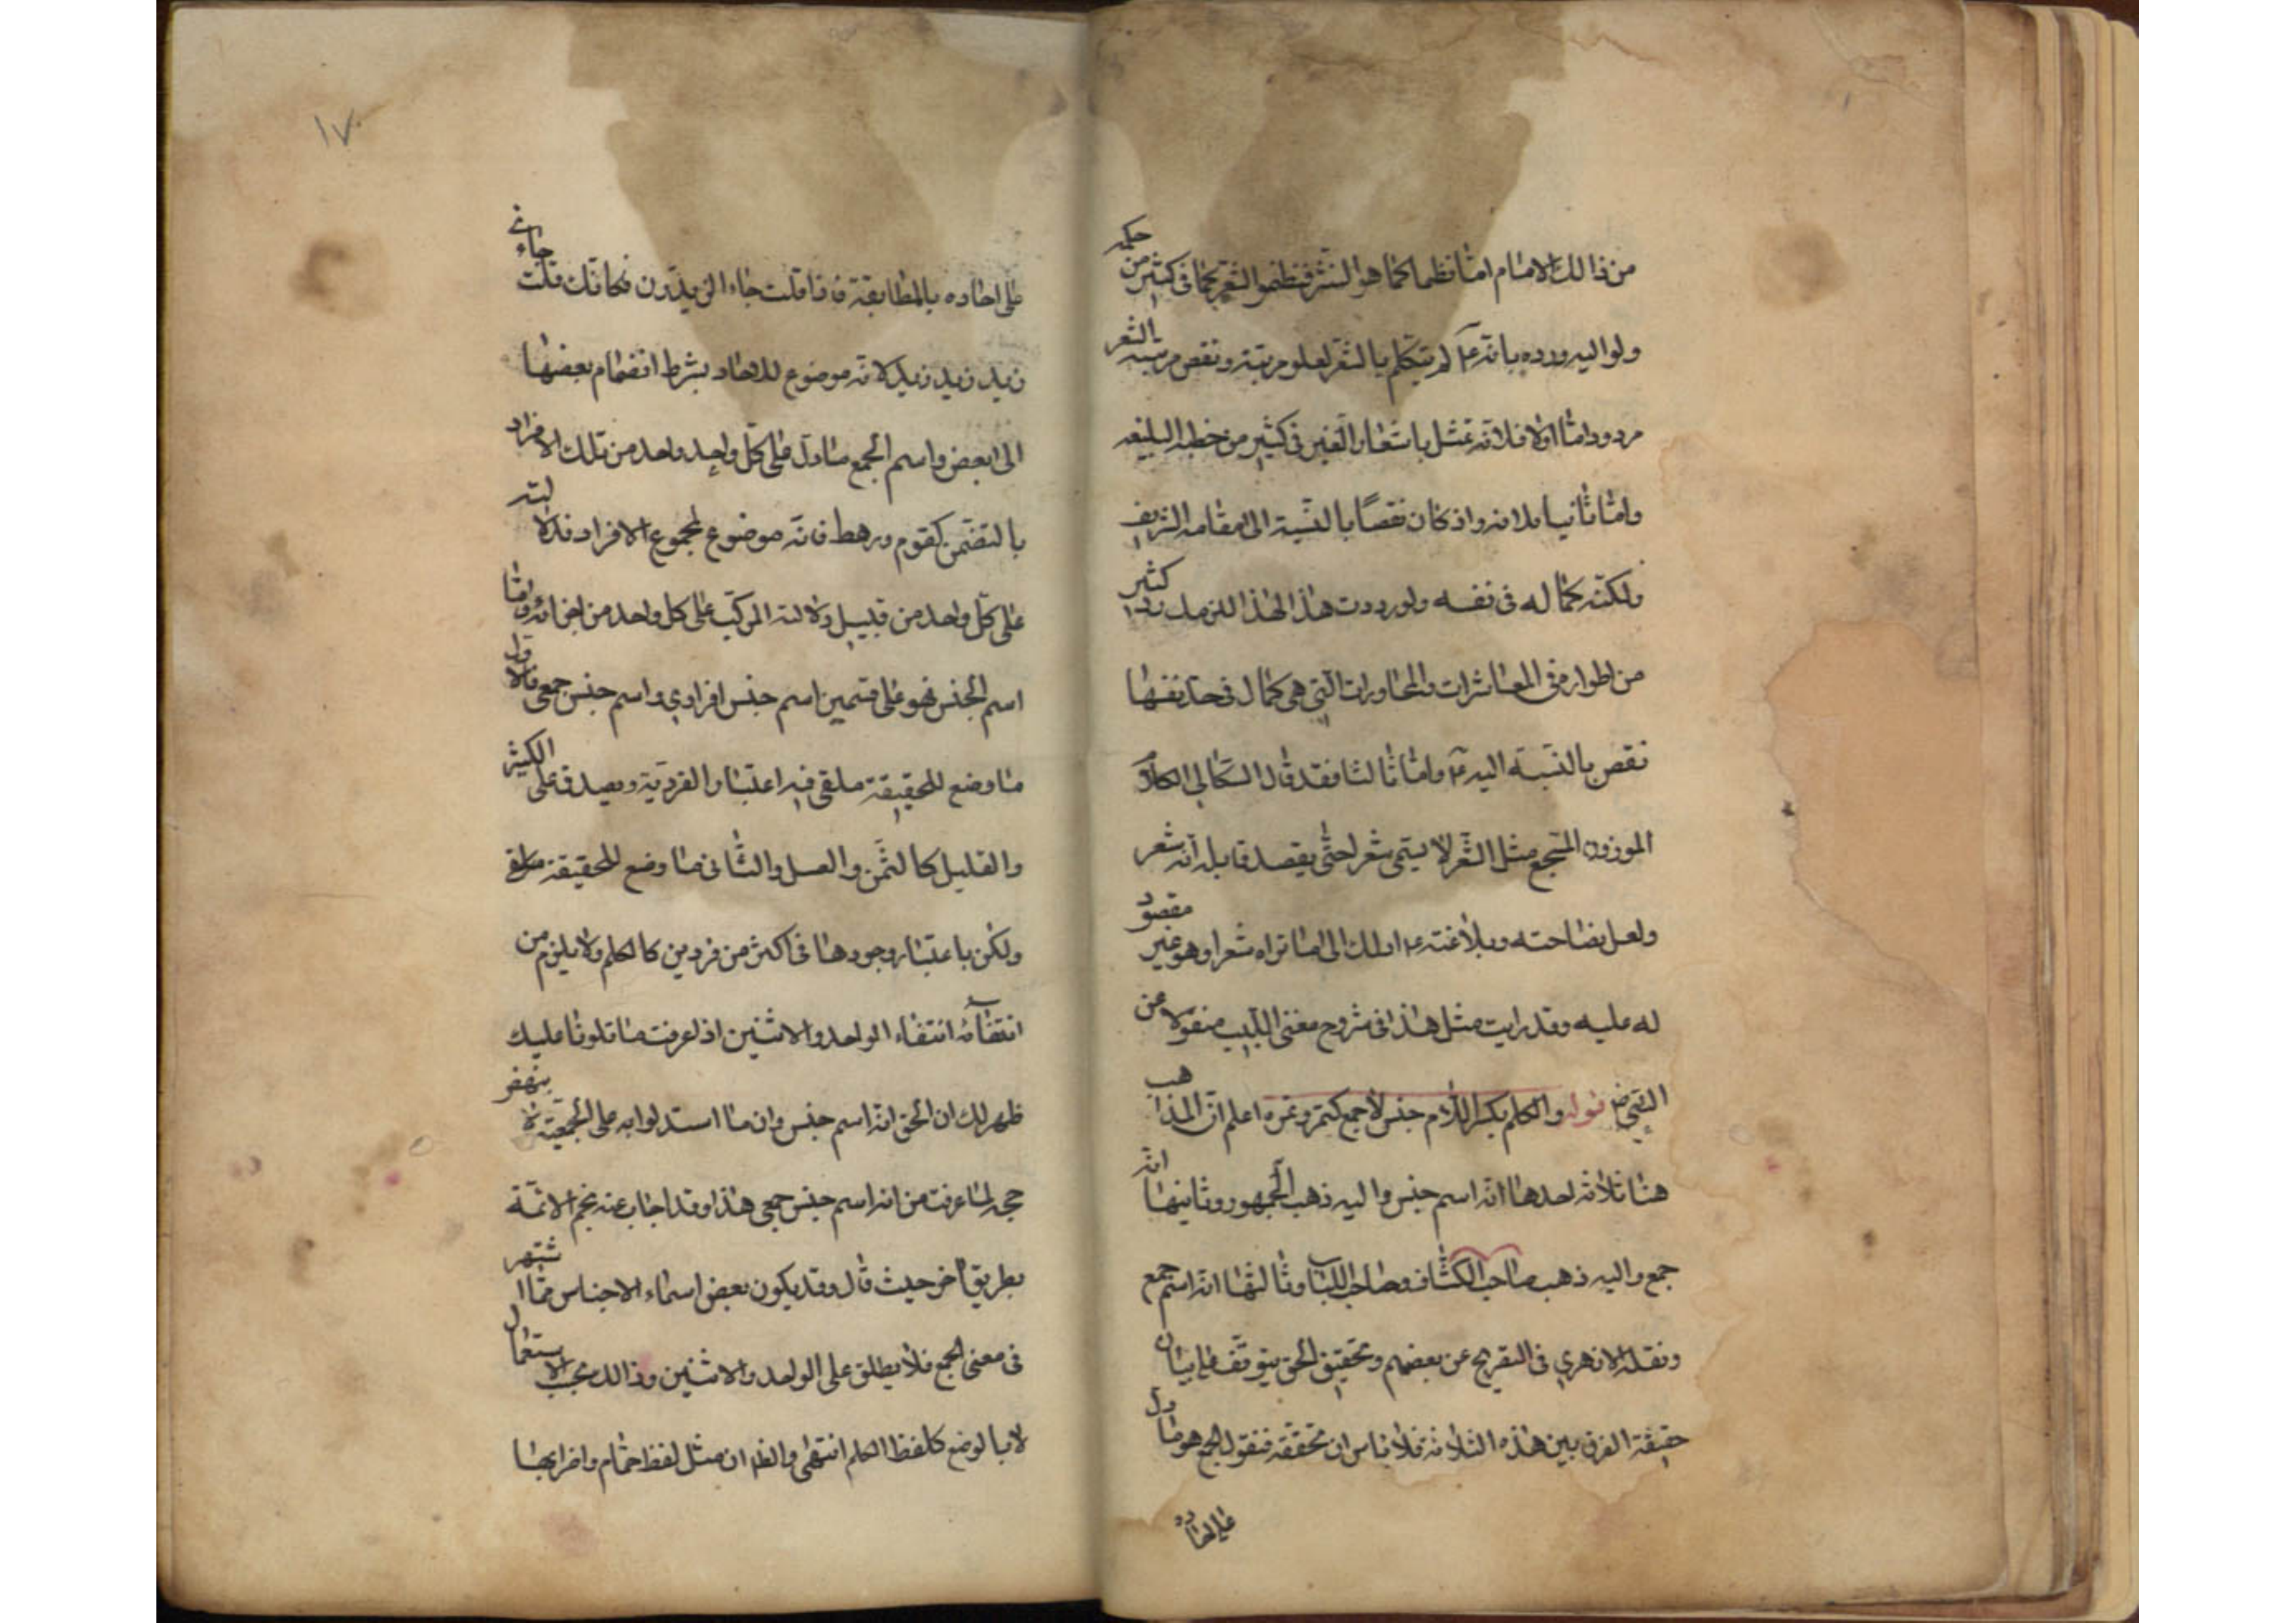 من ذالك الامام اما نظما كما هو لنثر فنظم الشعر كما فى كثير من حكمه
ولو اليه ورده بانه ع لم يتكلم بالشعر لعلو مرتبته ونقص مرتبة الشعر
مردود اما اولا فلانه تمثل باشعار الغير فى كثير من خطبه البليغه
واما ثانيا فلانه وان كان نقصا بالنسبة الى مقامه الشريف
ولكنه كمال له فى نفسه ولو ردت هذا لهذا للزمك رد كثير
من اطواره فى المعاشرات والمحاورات التى هى كمال فى حد نفسها
نقص بالنسبة اليه ع واما ثالثا فقد قال السكاكى الكلام
الموزون المسجع مثل الشعر لا يسمى شعرا حتى يقصد قايله انه شعر
ولعل فصاحته وبلاغته ع اولك الى ما تراه شعرا وهو غير مقصود
له عليه وقد رايت مثل هذا فى شروح مغنى اللبيب منقولا عن
التقى قوله والكلم بكسر اللام جنس لا جمع كتمر وتمره اعلم ان المذاهب
هنا ثلاثه احدها انه اسم جنس واليه ذهب الجمهور وثانيها انه
جمع واليه ذهب صاحب الكشاف وصاحب اللباب وثالثها انه اسم جمع
ونقله الازهرى فى التصريح عن بعضهم وتحقيق الحق يتوقف على بيان
حقيقة الفرق بين هذه الثلاثة فلا باس ان نحققه فنقول الجمع هو ما دل
على احاده
١٧
على احاده بالمطابقة فاذا قلت جاء الزيدون فكانك قلت جاءنى
زيد زيد زيد لانه موضوع للاحاد بشرط انضمام بعضها
الى بعض واسم الجمع ما دل على كل واحد واحد من تلك الافراد
بالتضمن كقوم ورهط فانه موضوع لمجموع الافراد فدلالته
على كل واحد من قبيل دلالته المركب على كل واحد من اجزائه واما
اسم الجنس فهو على قسمين اسم جنس افرادى واسم جنس جمعى فالاول
ما وضع للحقيقة ملقى فيه اعتبار الفردية ويصدق على الكثير
والقليل كالتمن والعسل والثانى ما وضع للحقيقة
ولكن باعتبار وجودها فى اكثر من فردين كالكلم ولا يلزم من
انتفائه انتفاء الواحد والاثنين اذا عرفت ما تلونا عليك
ظهر لك ان الحق انه اسم جنس وان ما استدلوا به على الجمعية لا ينهض
حجة لما عرفت من انه اسم جنس جمعى هذا وقد اجاب عنه نجم الائمة
بطريق آخر حيث قال وقد يكون بعض اسماء الاجناس مما اشتهر
فى معنى الجمع فلا يطلق على الواحد والاثنين وذالك بحسب الاستعمال
لا بالوضع كلفظ الكلم انتهى والظ ان مثل لفظ حمام واضرابها